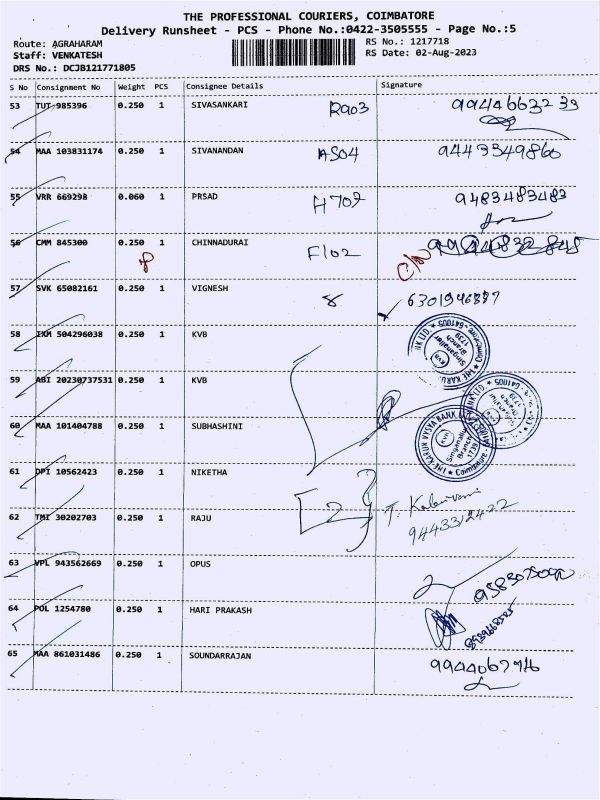 THE PROFESSIONAL COURIERS, COIMBATORE
Delivery Runsheet - PCS - Phone No.:0422-3505555 - Page No.:5
Route: AGRAHARAM
RS No.: 1217718
Staff: VENKATESH
RS Date: 02-Aug-2023
DRS No.: DCJB121771805
S No Consignment No Weight PCS Consignee Details Signature
53 TUT 985396 0.250 1 SIVASANKARI R903 9944663239
54 MAA 103831174 0.250 1 SIVANANDAN AS04 9443349860
55 VRR 669298 0.060 1 PRSAD H702 9483483483
56 CMM 845300 0.250 1 CHINNADURAI F102
57 SVK 65082161 0.250 1 VIGNESH 8 6301946887
58 IXM 504296038 0.250 1 KVB
59 ABI 20230737531 0.250 1 KVB
60 MAA 101404788 0.250 1 SUBHASHINI
THE KARUR VYSYA BANK LTD. Singanallur Branch 1739 Coimbatore - 641005 KVB
61 DPI 10562423 0.250 1 NIKETHA
62 TMI 30202703 0.250 1 RAJU [2] 9443312422
63 VPL 943562669 0.250 1 OPUS
64 POL 1254780 0.250 1 HARI PRAKASH
65 MAA 861031486 0.250 1 SOUNDARRAJAN